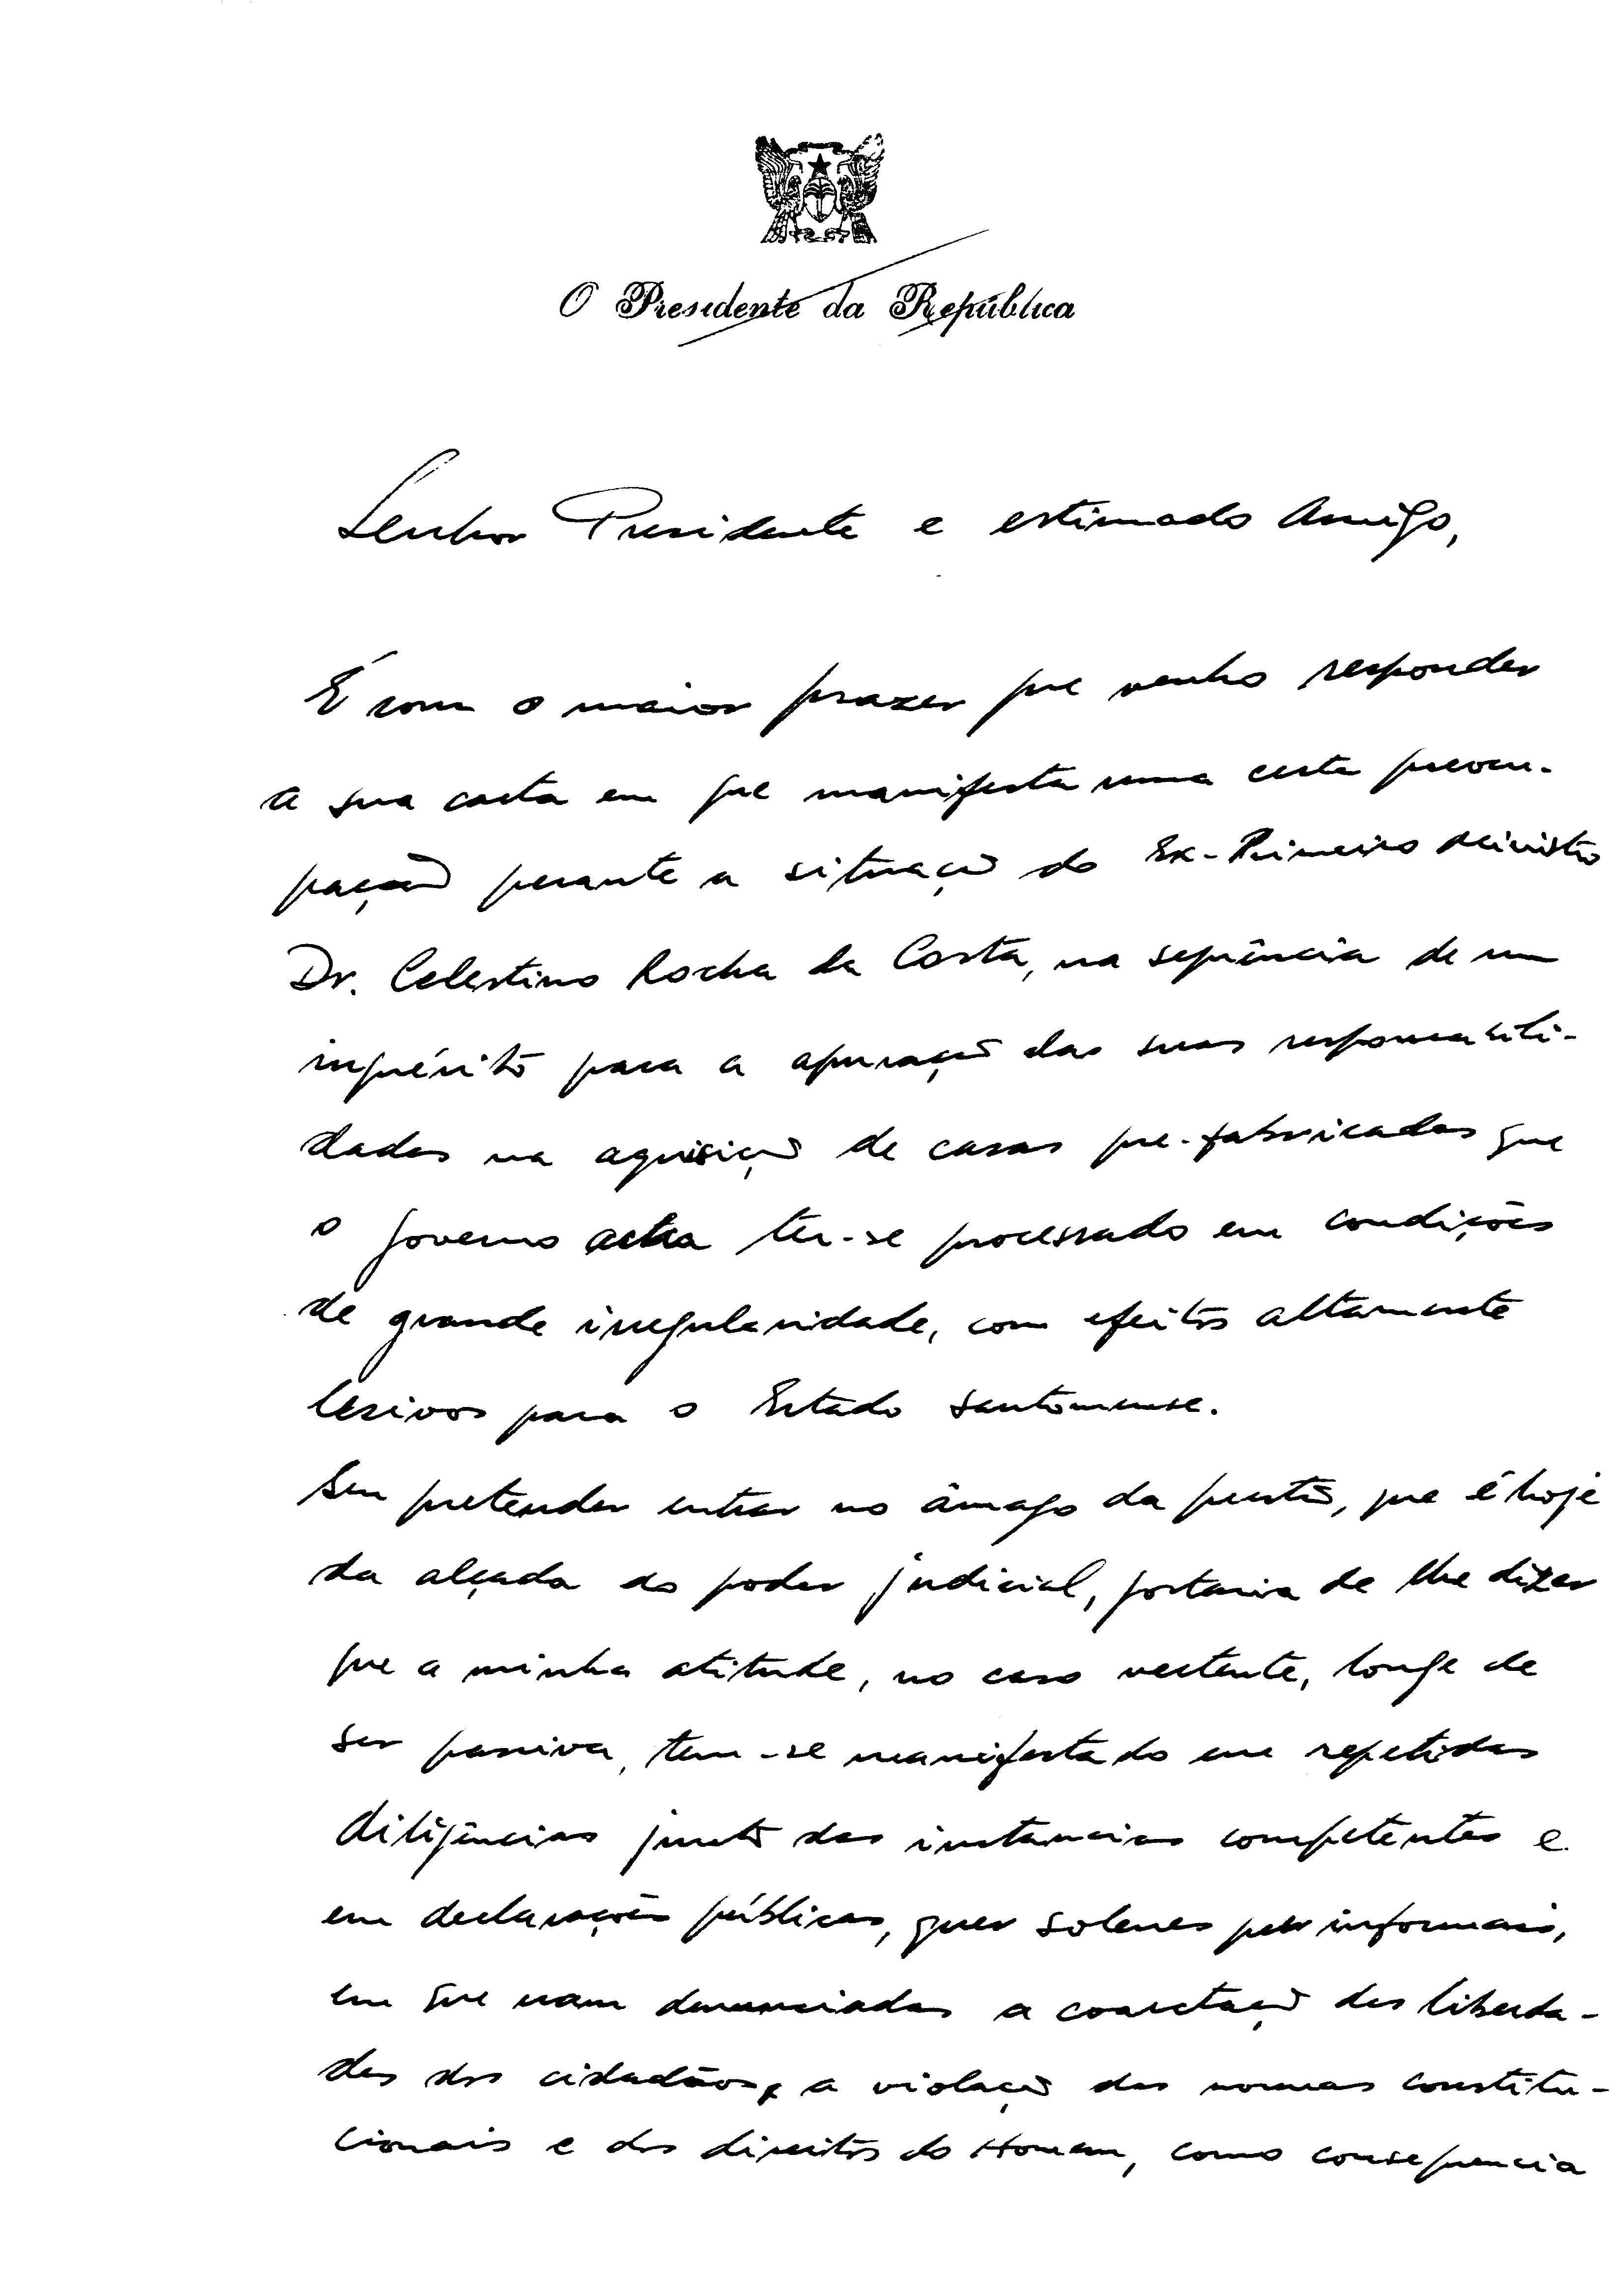 O Presidente da República
Senhor Presidente e estimado Amigo,
É com o maior prazer que venho responder
a sua carta em que manifesta uma certa preocu-
pação perante a situação do Ex-Primeiro Ministro
Dr. Celestino Rocha da Costa, na sequência de um
inquérito para a apuração das suas responsabili-
dades na aquisição de casas pre-fabricadas que
o governo acha ter-se processado em condições
de grande irregularidade, com efeitos altamente
lesivos para o Estado santomense.
Sem pretender entrar no âmago da questão, que é hoje
da alçada do poder judicial, gostaria de lhe dizer
que a minha atitude, no caso vertente, longe de
ser passiva, tem-se manifestado em repetidas
diligências junto das instancias competentes e
em declarações públicas, quer solenes quer informais,
em que eram denunciadas a coarctação das liberda-
des dos cidadãos, a violação das normas constitu-
cionais e dos direitos do Homem, como consequencia